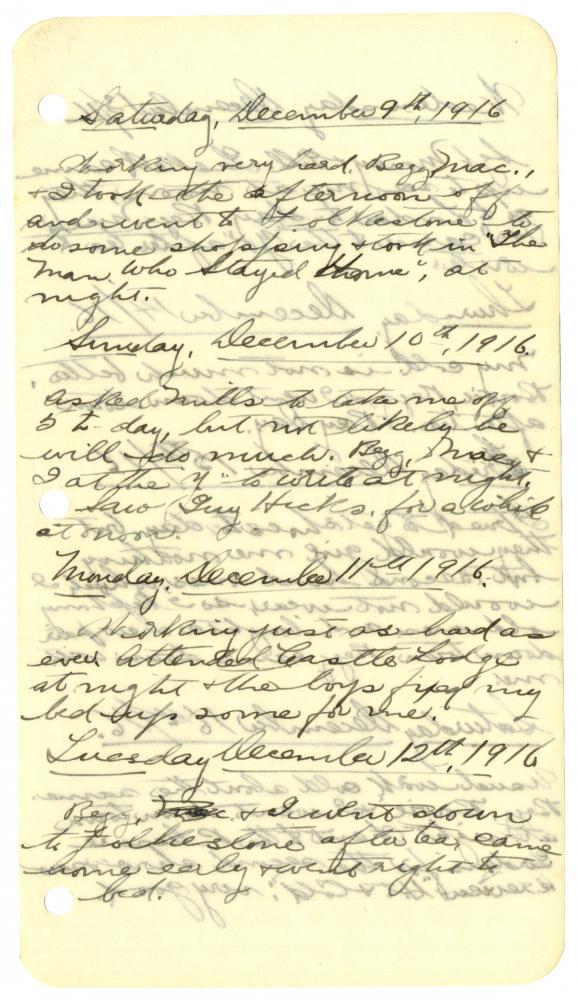 Saturday, December 9th, 1916
Working very hard. Begg, Mac.,
& I took the afternoon off
and went to Folkestone to
do some shopping & took in "The
Man Who Stayed Home", at
night.
Sunday, December 10th, 1916.
Asked Mills to take me off
5 to-day, but not likely he
will do much. Begg, Mac, &
I at the "Y" to write at night.
Saw Guy Hicks, for a while
at noon.
Monday, December 11th 1916.
Working just as hard as
ever. Attended Castle Lodge
at night & the boys fixed my
bed up some for me.
Tuesday December 12th, 1916
Begg, Mac. & I went down
to Folkestone after tea, came
home early & went right to
bed.